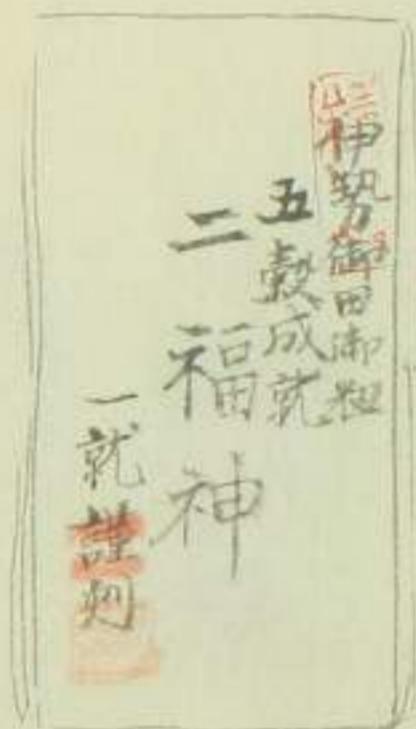 伊勢御田御祖
五穀成就
二福神
一就謹刻